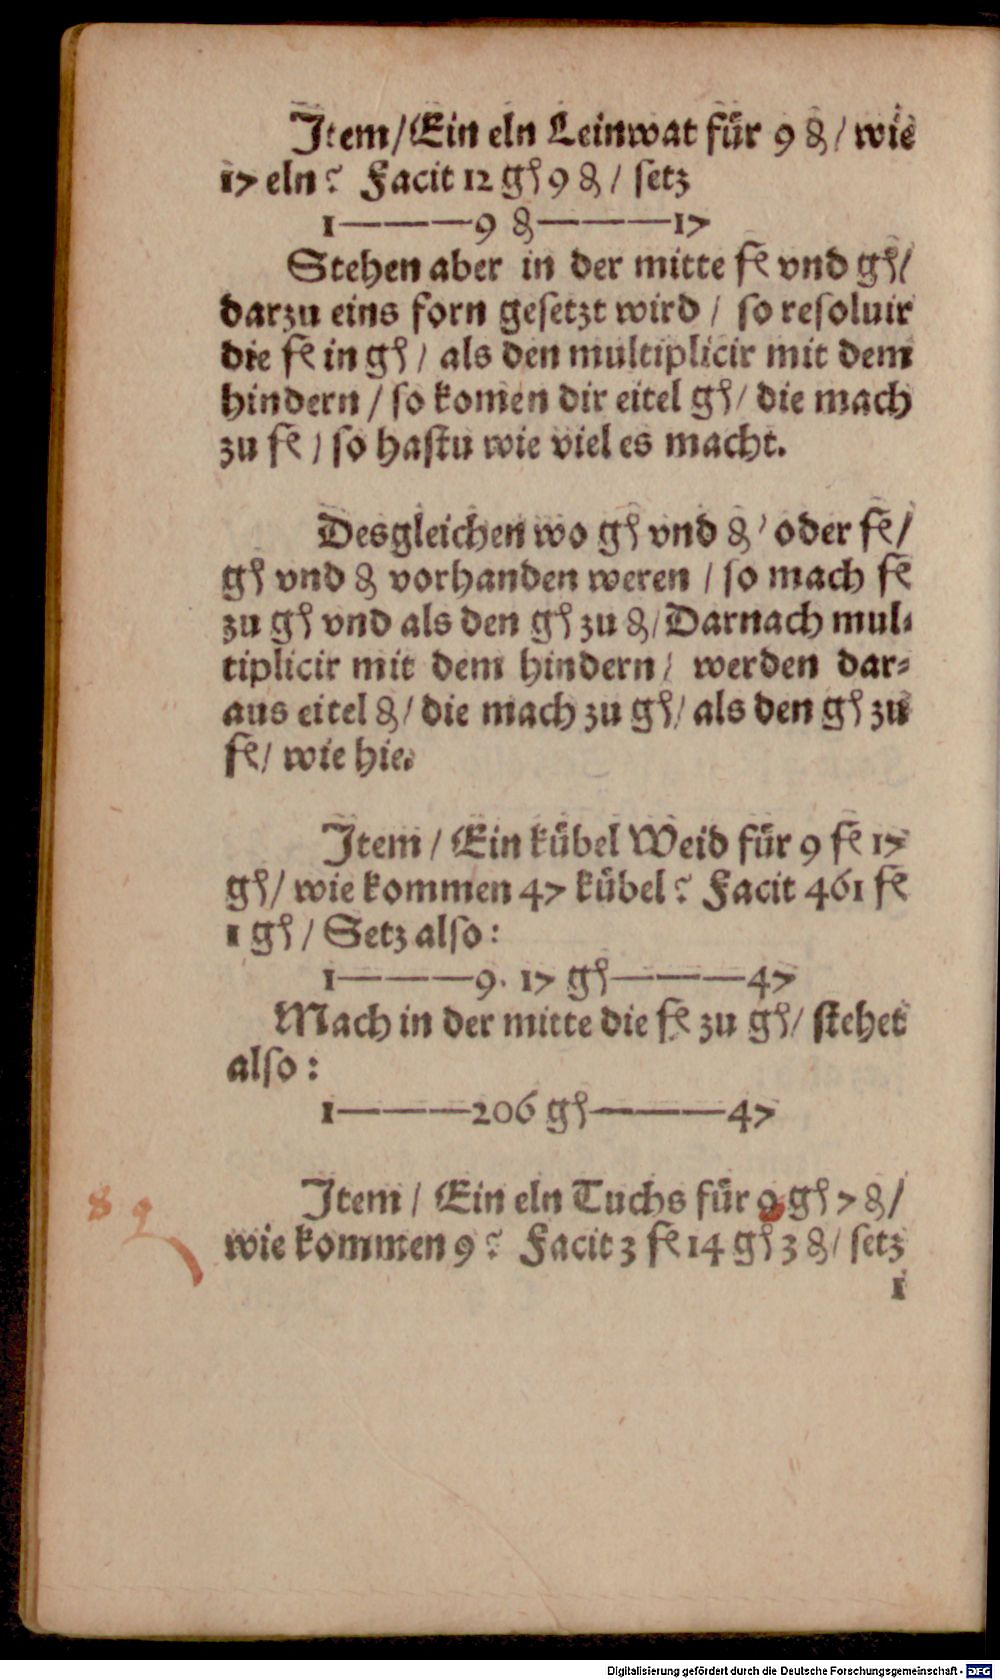 Item/Ein eln Leinwat für 9 ₰/ wie
17 eln? Facit 12 gꝭ 9 ₰/ setz
1———9 ₰———17
Stehen aber in der mitte fl vnd gꝭ/
darzu eins forn gesetzt wird/ so resoluir
die fl in gꝭ/ als den multiplicir mit dem
hindern/ so komen dir eitel gꝭ/ die mach
zu fl/ so hastu wie viel es macht.
Desgleichen wo gꝭ vnd ₰/ oder fl/
gꝭ vnd ₰ vorhanden weren/ so mach fl
zu gꝭ vnd als den gꝭ zu ₰/ Darnach mul-
tiplicir mit dem hindern/ werden dar-
aus eitel ₰/ die mach zu gꝭ/ als den gꝭ zu
fl/ wie hie.
Item/ Ein kübel Weid für 9 fl 17
gꝭ/ wie kommen 47 kübel? Facit 461 fl
1 gꝭ/ Setz also:
1———9. 17 gꝭ———47
Mach in der mitte die fl zu gꝭ/ stehet
also:
1———206 gꝭ———47
Item/ Ein eln Tuchs für 9 gꝭ 7 ₰/
8 9
wie kommen 9? Facit 3 fl 14 gꝭ 3 ₰/ setz
1
Digitalisierung gefördert durch die Deutsche Forschungsgemeinschaft - DFG